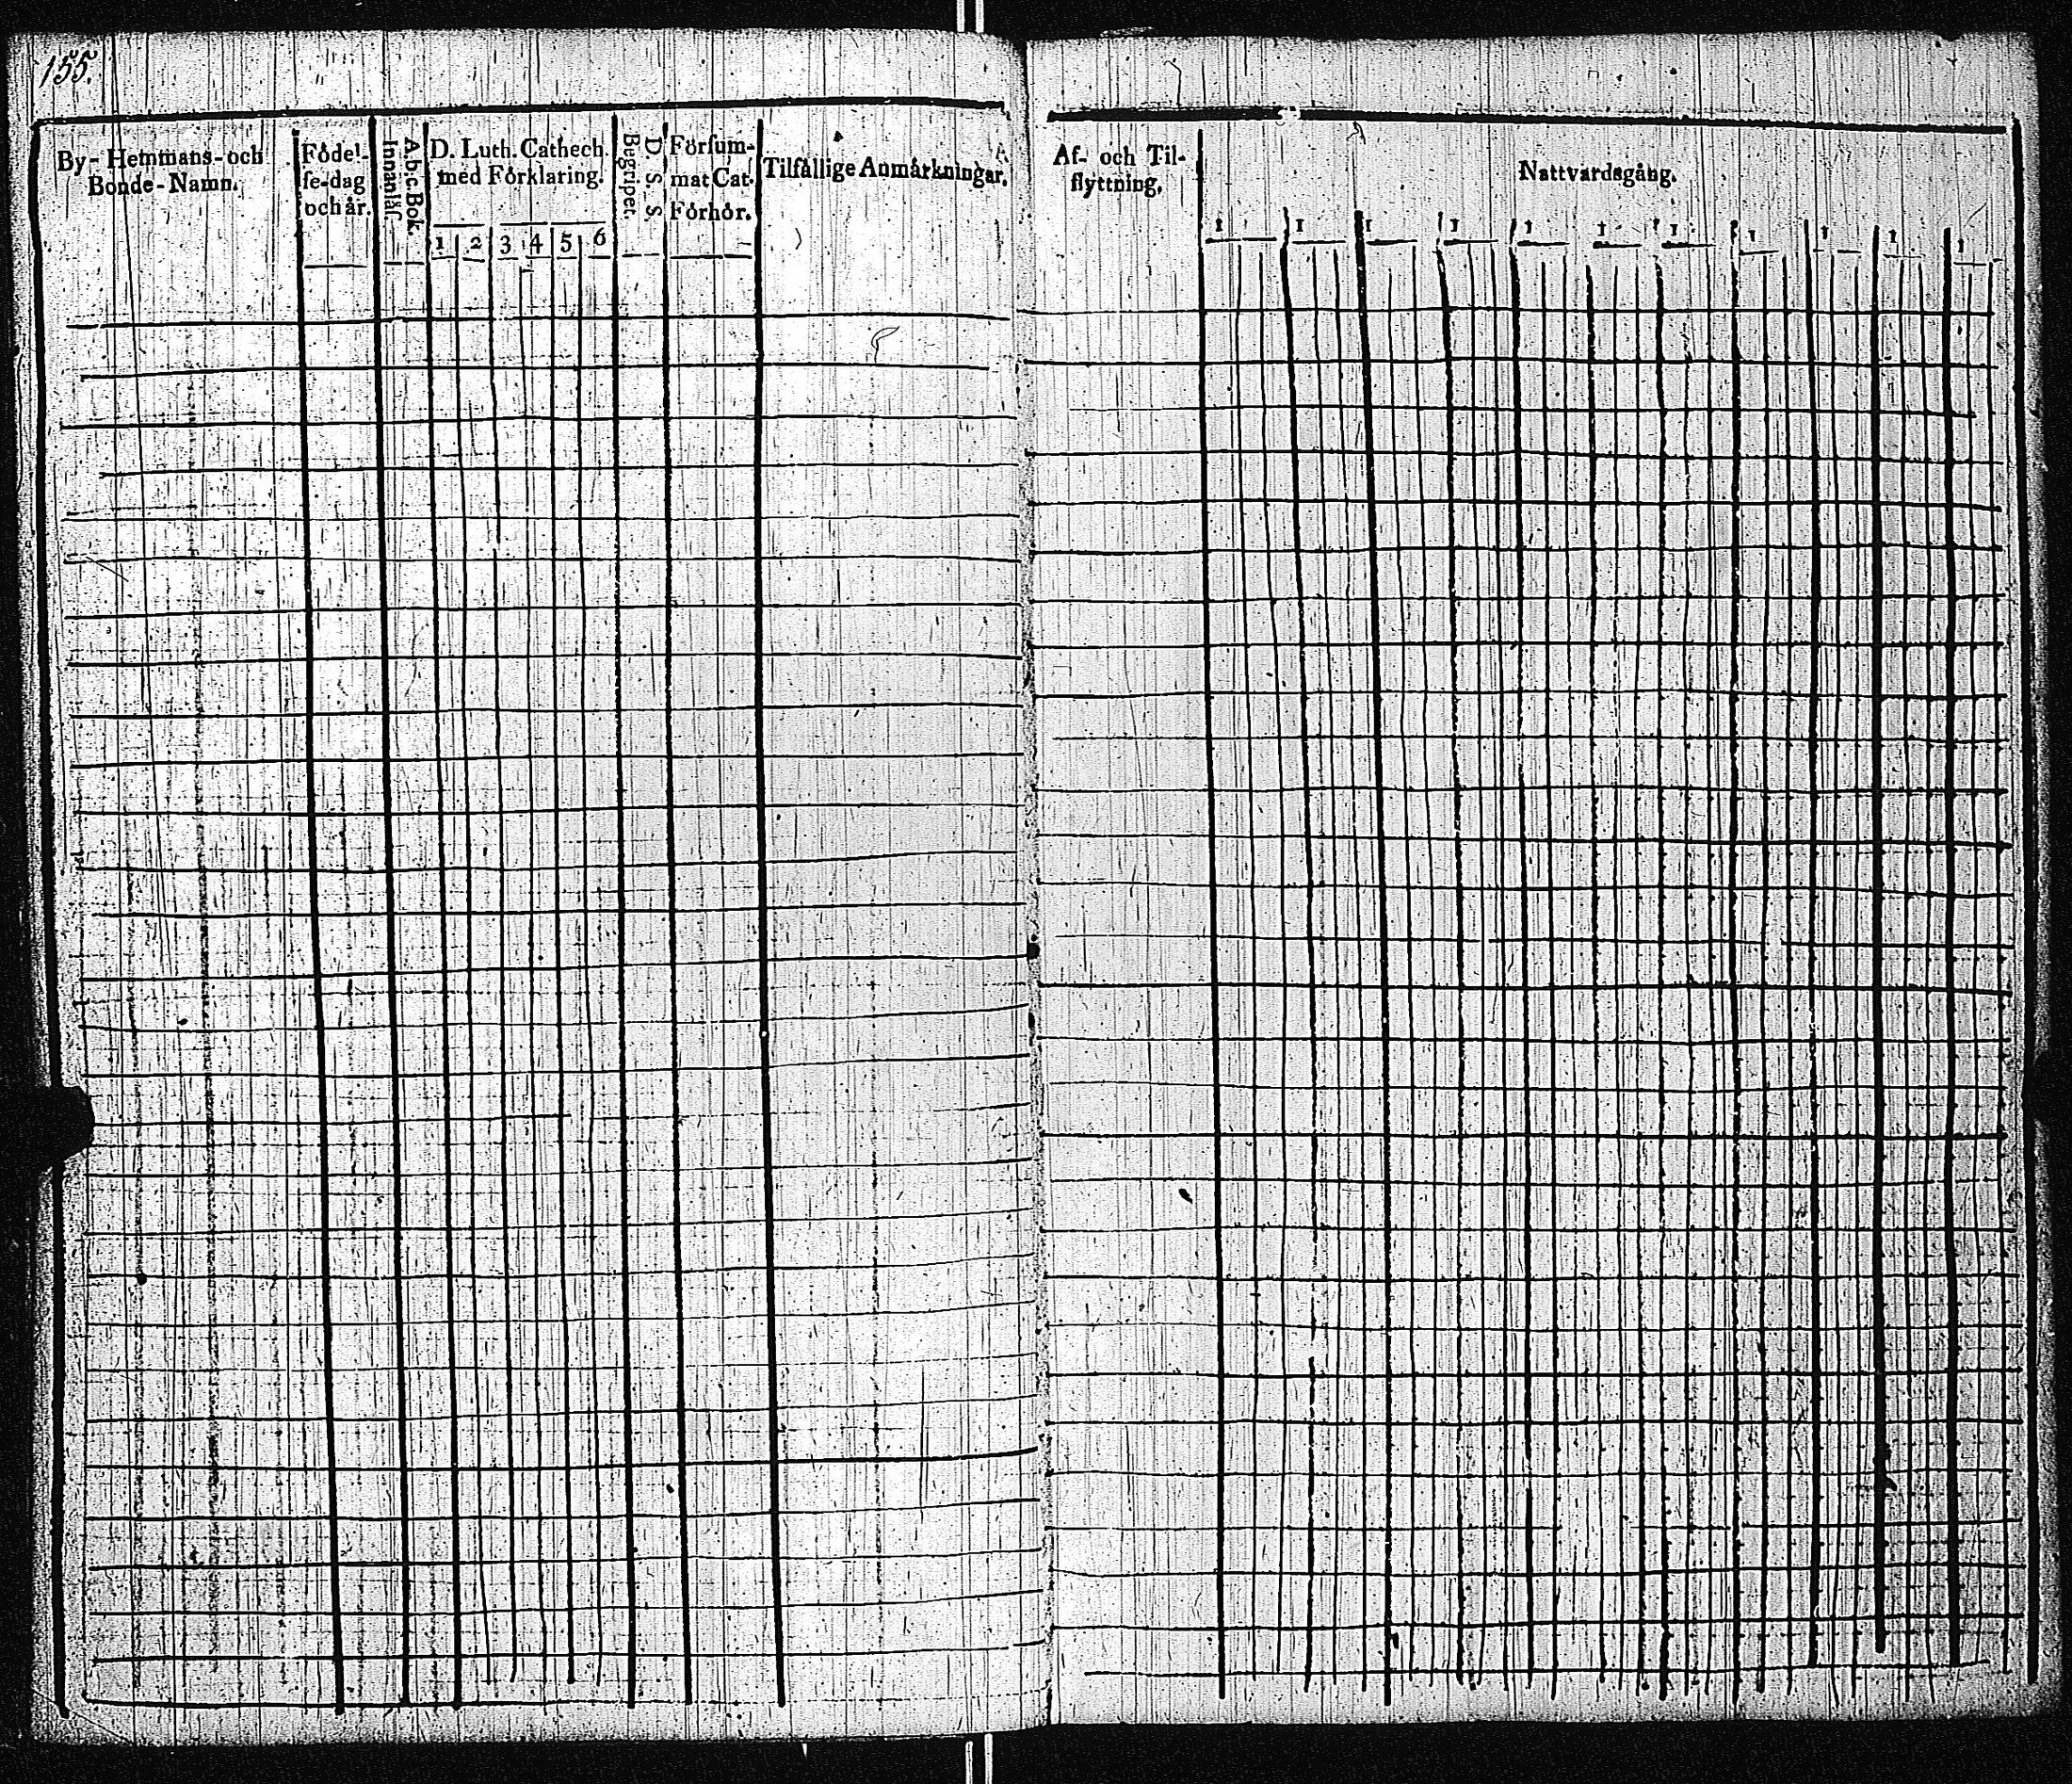 155.
By- Hemmans- och
Bonde-Namn.
Födel-
se-dag
och år.
A.b.c. Bok.
Innanläs.
D. Luth. Cathech.
med Förklaring.
1 2 3 4 5 6
D. S. S.
Begriper.
Försum-
mat Cat.
Förhör.
Tilfällige Anmärkningar.
Af- och Til-
flyttning.
Nattvardsgång.
1 1 1 1 1 1 1 1 1 1 1